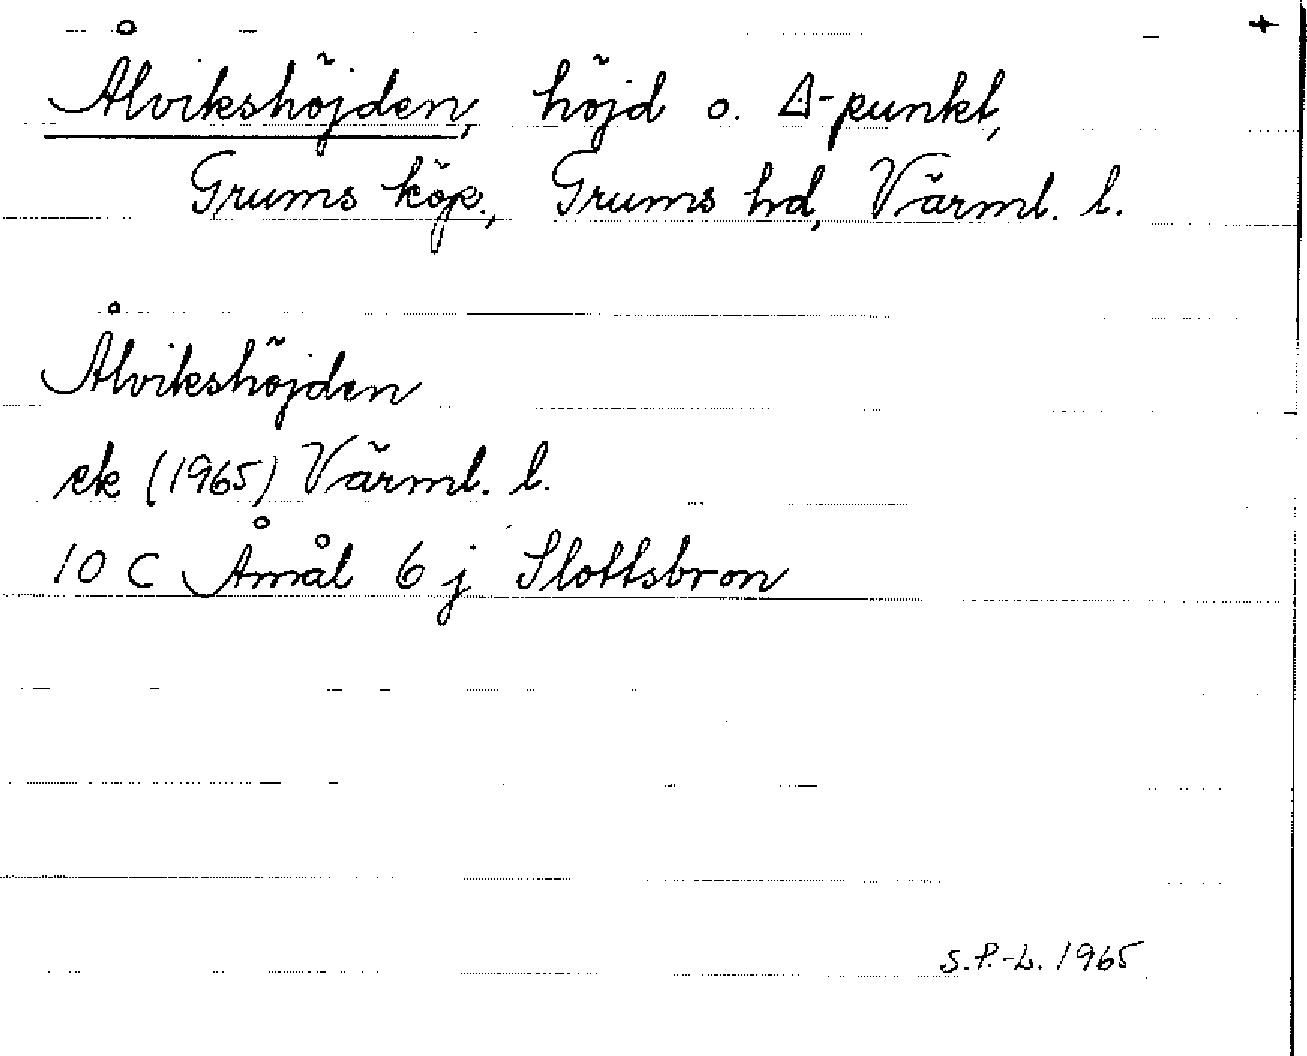 +
Ålvikshöjden, höjd o. Δ-punkt,
Grums köp., Grums hd, Värml. l.
Ålvikshöjden
ek (1965) Värml. l.
10 C Åmål 6 j Slottsbron
S.P.-L. 1965